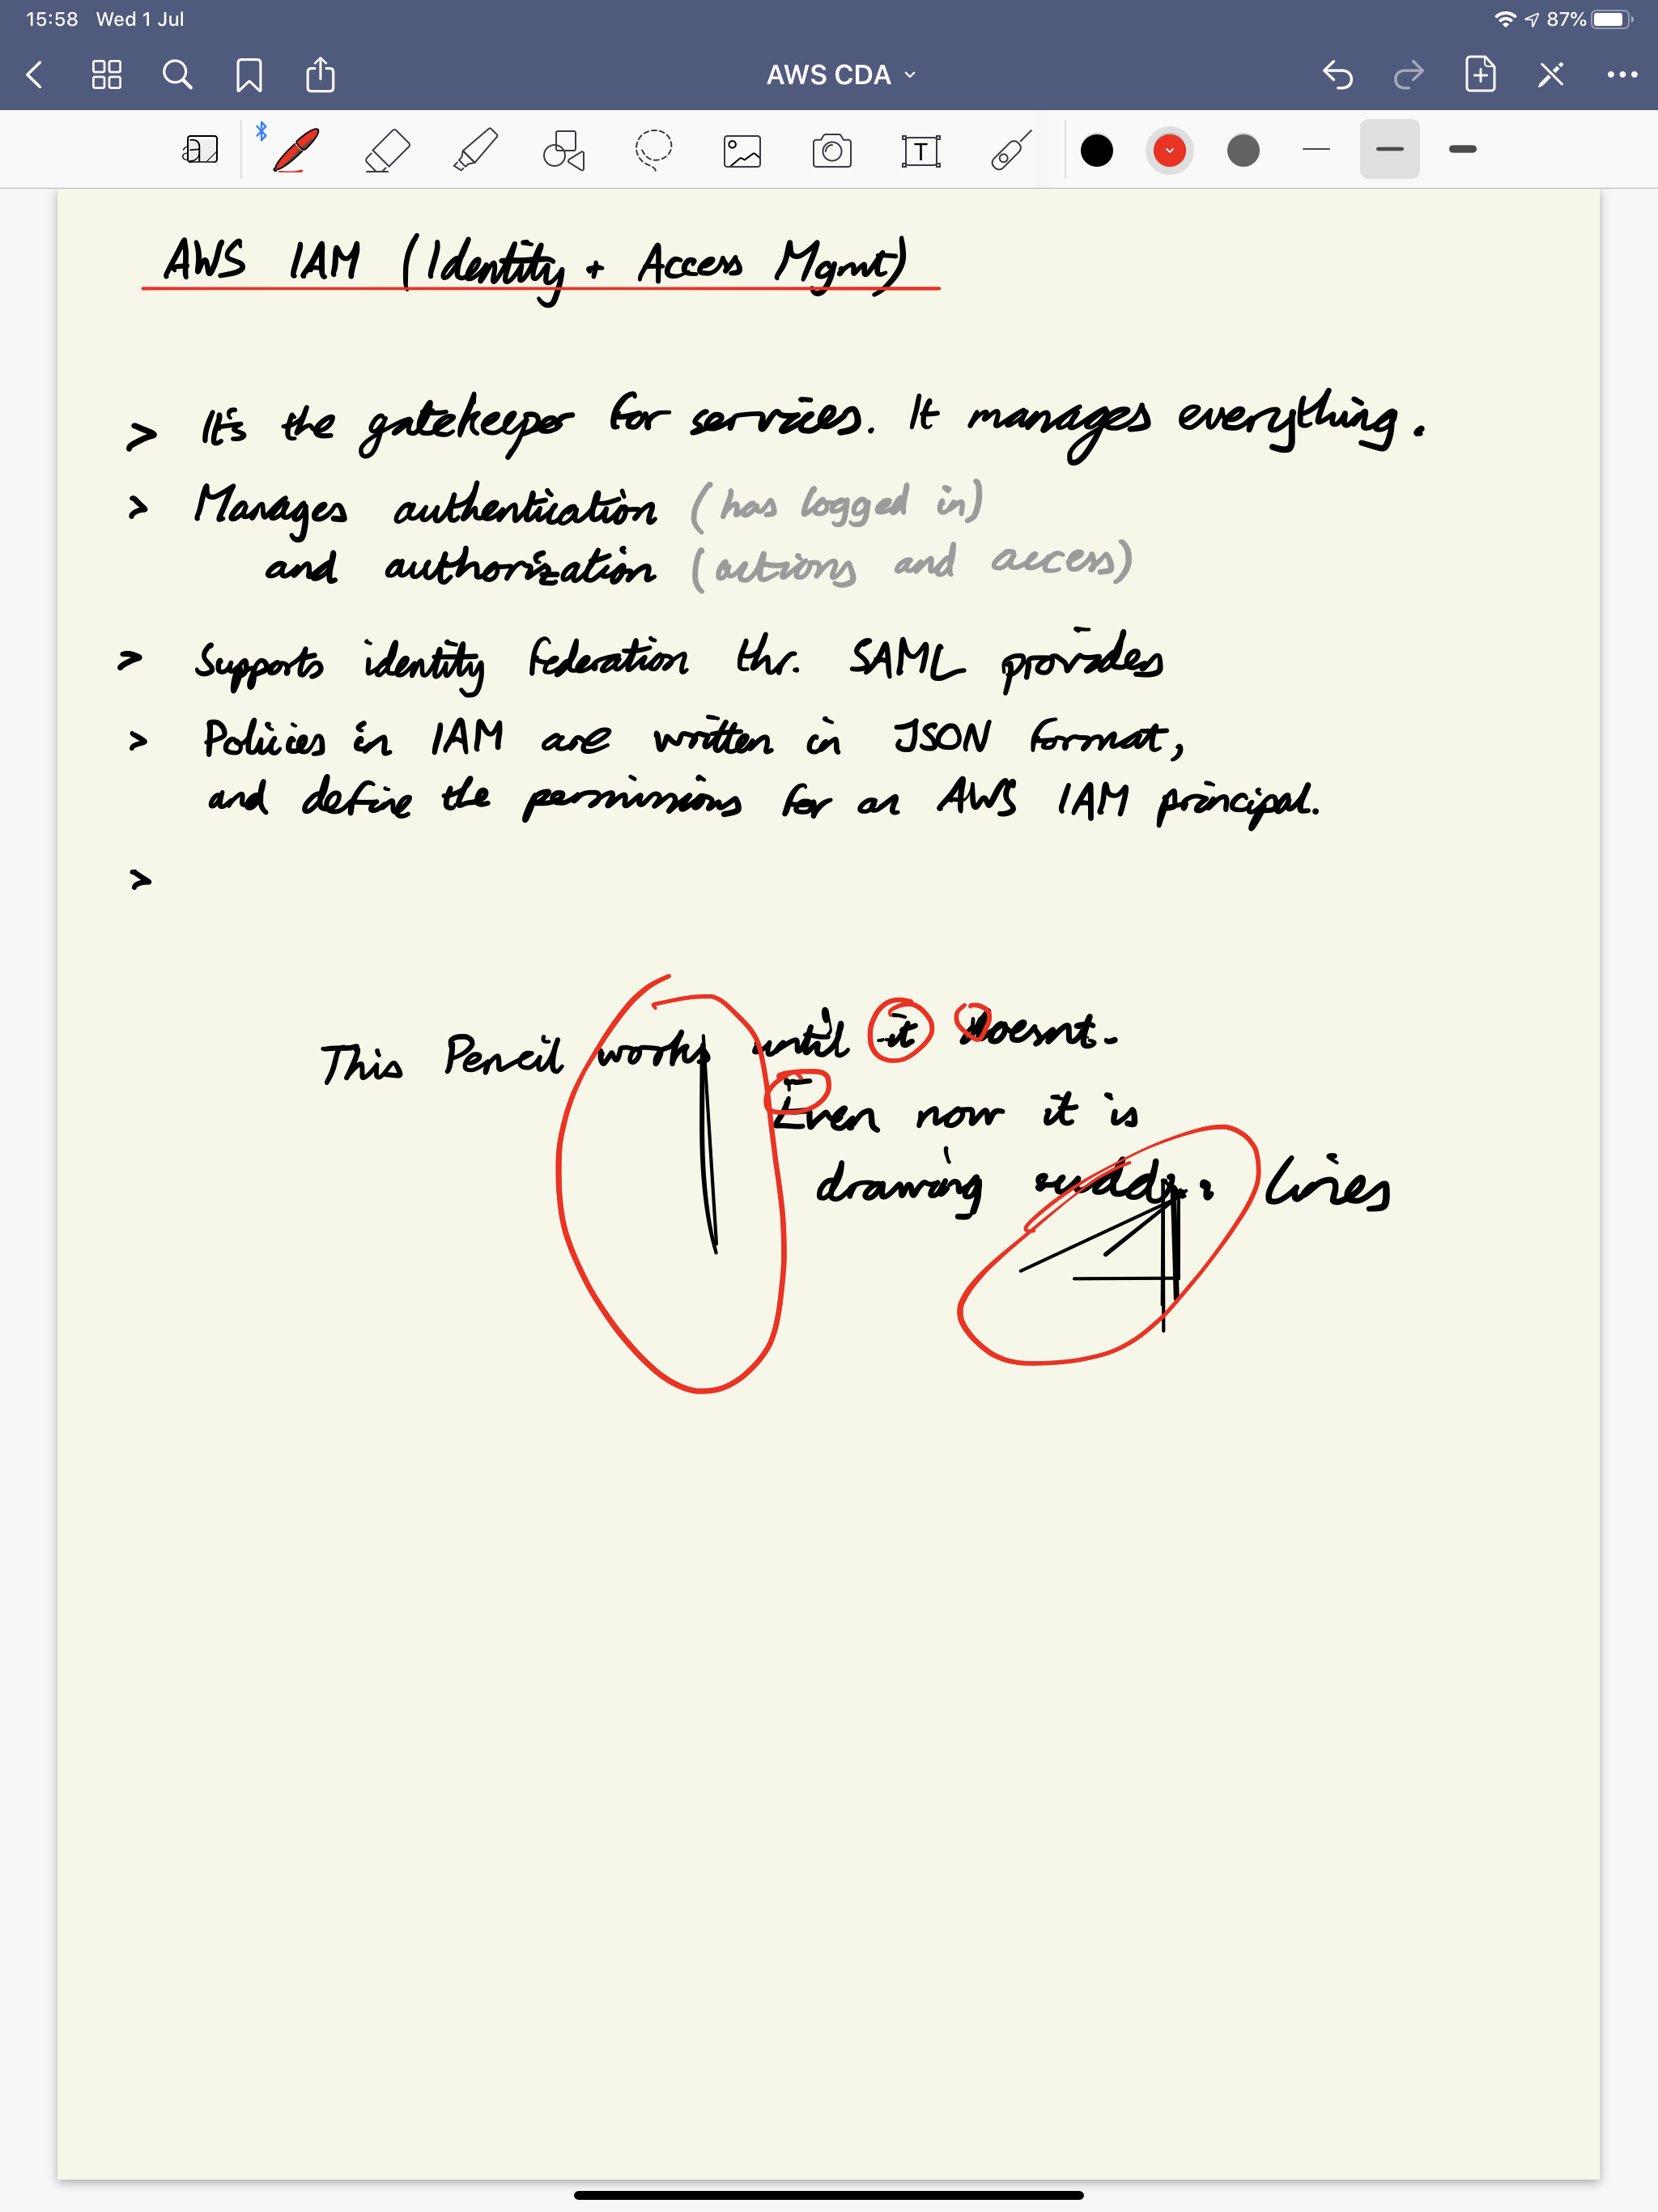 15:58 Wed 1 Jul 87%
AWS CDA
T
AWS IAM (Identity + Access Mgmt)
> It's the gatekeeper for services. It manages everything.
> Manages authentication (has logged in)
and authorization (actions and access)
> Supports identity federation thr. SAML providers
> Policies in IAM are written in JSON format,
and define the permissions for an AWS IAM principal.
>
This Pencil works until it doesnt.
Even now it is
drawing lines